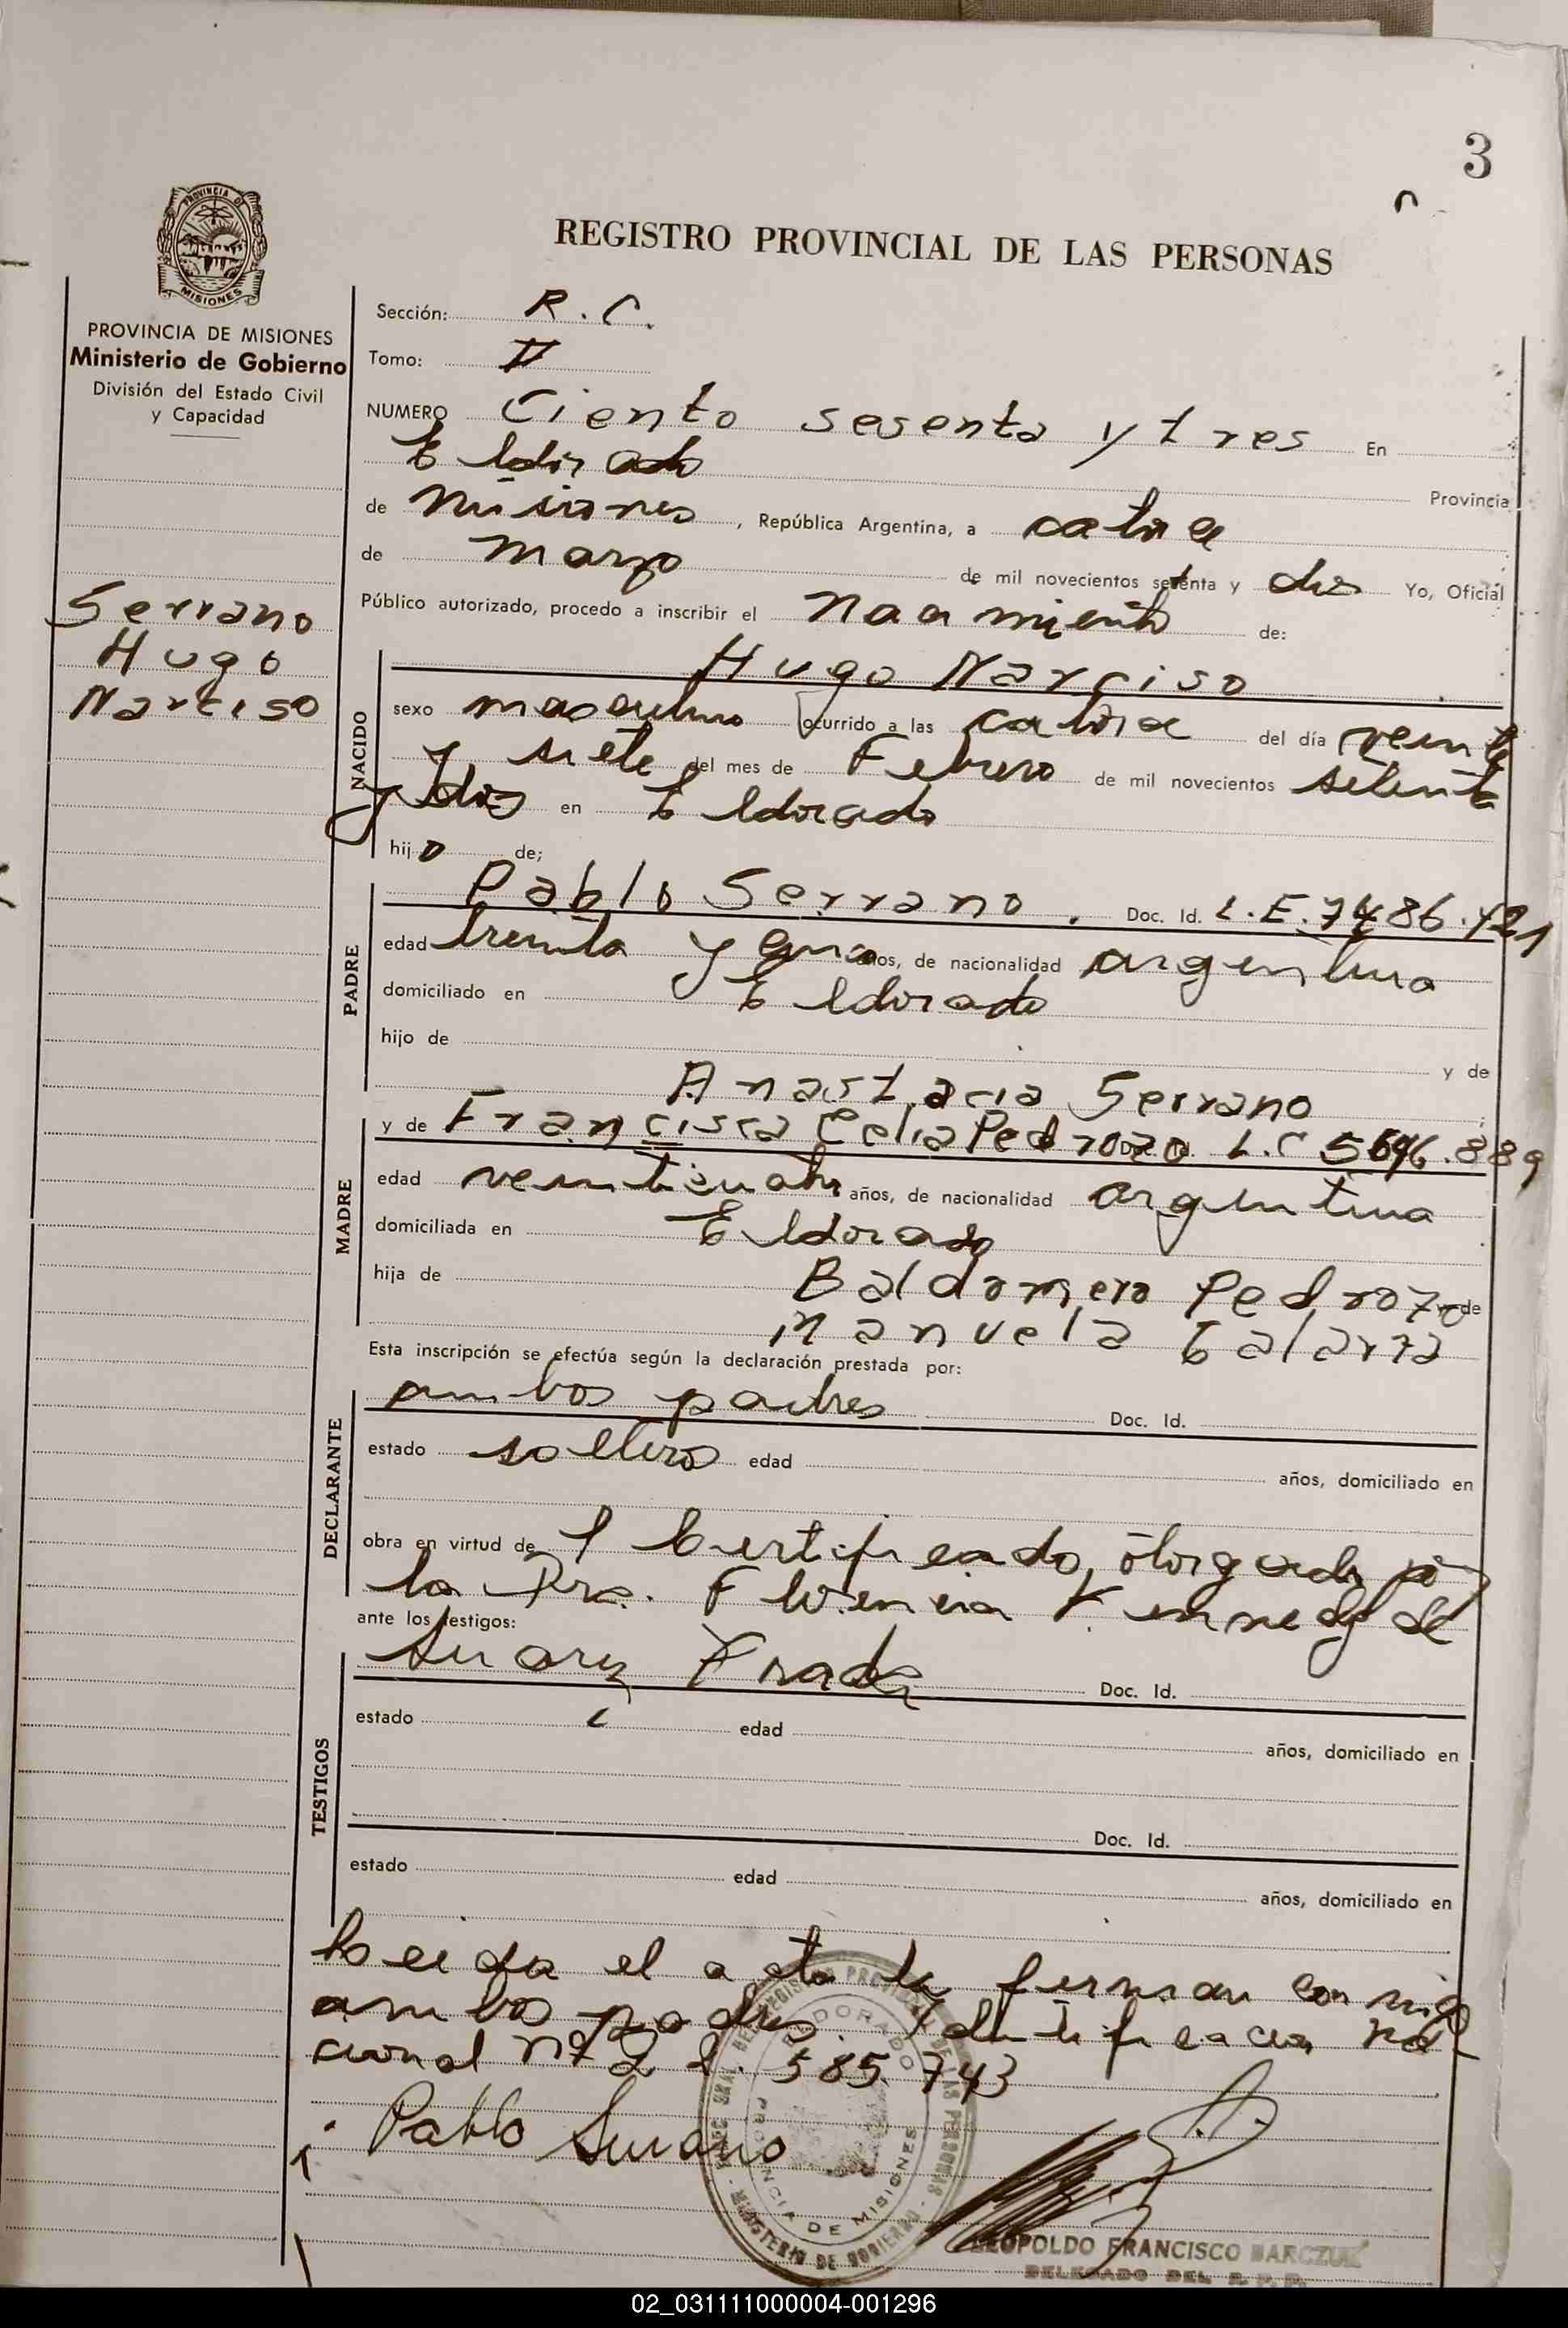 3
PROVINCIA DE
MISIONES
REGISTRO PROVINCIAL DE LAS PERSONAS
PROVINCIA DE MISIONES
Ministerio de Gobierno
División del Estado Civil
y Capacidad
Serrano
Hugo
Narciso
Sección: R. C.
Tomo: II
NUMERO Ciento sesenta y tres En
Eldorado Provincia
de Misiones, República Argentina, a catorce
de Marzo de mil novecientos setenta y dos Yo, Oficial
Público autorizado, procedo a inscribir el Nacimiento de:
NACIDO
Hugo Narciso
sexo masculino ocurrido a las catorce del día veinte
y siete del mes de Febrero de mil novecientos setenta
y dos en Eldorado
hijo de;
PADRE
Pablo Serrano. Doc. Id. L.E. 7486.
edad treinta y años, de nacionalidad argentina
domiciliado en Eldorado
hijo de y de
Anastacia Serrano
MADRE
y de Francisca Celia Pedrozo L.C 889
edad veinticuatro años, de nacionalidad argentina
domiciliada en Eldorado
hija de Baldomero Pedrozo y de
Manuela Galarza
Esta inscripción se efectúa según la declaración prestada por:
DECLARANTE
ambos padres Doc. Id.
estado soltero edad años, domiciliado en
obra en virtud del Certificado, otorgado por
la Dra. Florencia K. de
ante los testigos:
TESTIGOS
Suarez Doc. Id.
estado edad años, domiciliado en
Doc. Id.
estado edad años, domiciliado en
Leida el acta la firman conmigo
ambos padres. Identificacion Na-
cional Nº 22. 585.743
Pablo Serrano
ELDORADO
PROVINCIA DE MISIONES
MINISTERIO DE GOBIERNO
LEOPOLDO FRANCISCO
DELEGADO DEL R. P. P.
02_031111000004-001296